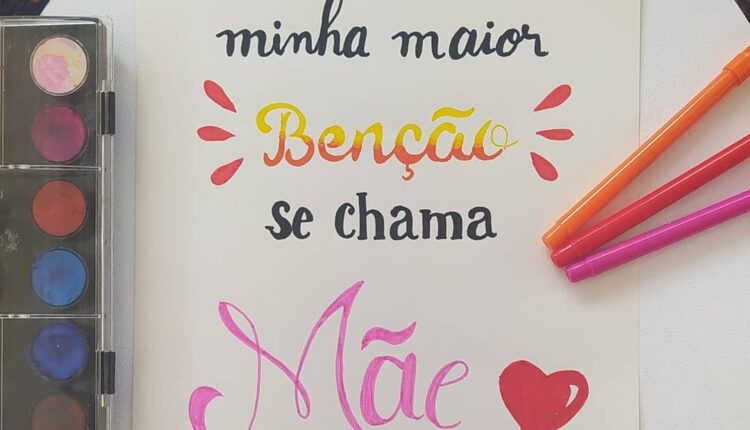 minha maior
Benção
se chama
Mãe